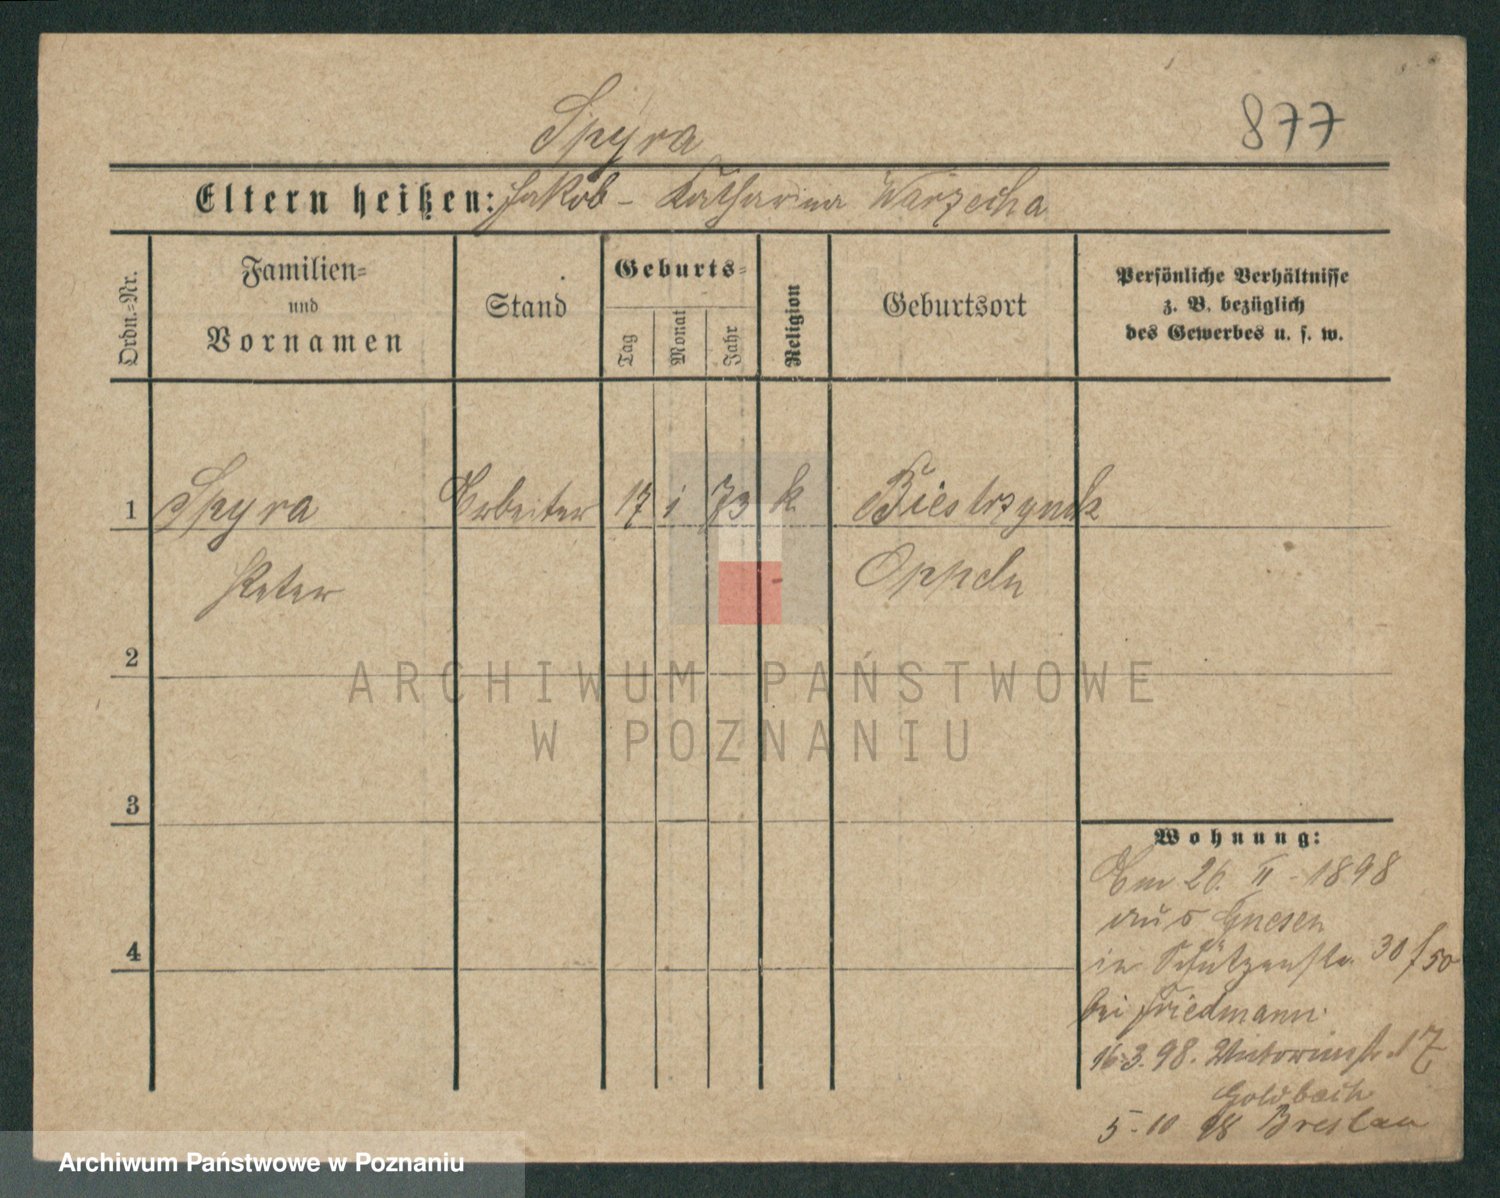 Spyra
877
Eltern heißen: Jakob - Katharina Warzecha
Ordn.=Nr.
Familien=
und
Vornamen
Stand
Geburts=
Tag
Monat
Jahr
Religion
Geburtsort
Persönliche Verhältnisse
z. B. bezüglich
des Gewerbes u. s. w.
1 Spyra Arbeiter 17 1 73 k
Peter Oppeln
2
3
4
Wohnung:
Am 26. II - 1898
aus Gnesen
in Schützenstr. 30 / 50
bei Friedmann
16.3.98. 17
Goldbach
5-10 98 Breslau
ARCHIWUM PAŃSTWOWE
W POZNANIU
Archiwum Państwowe w Poznaniu